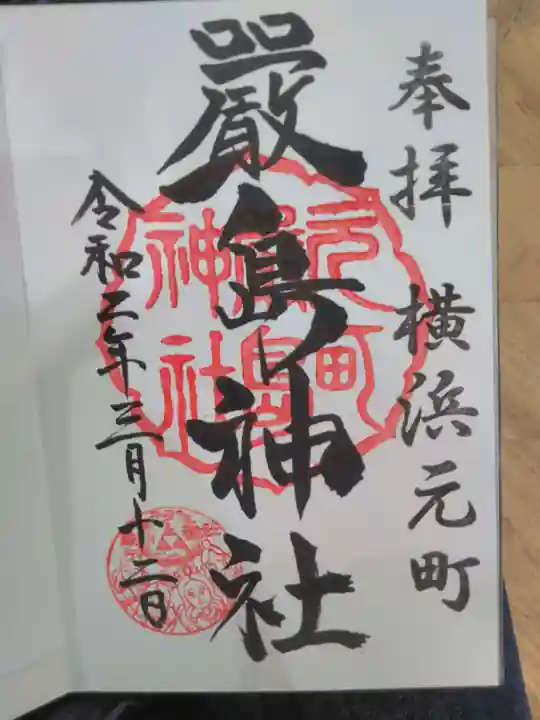 奉拝 横浜元町
嚴島神社
元町
嚴島
神社
令和二年三月十二日